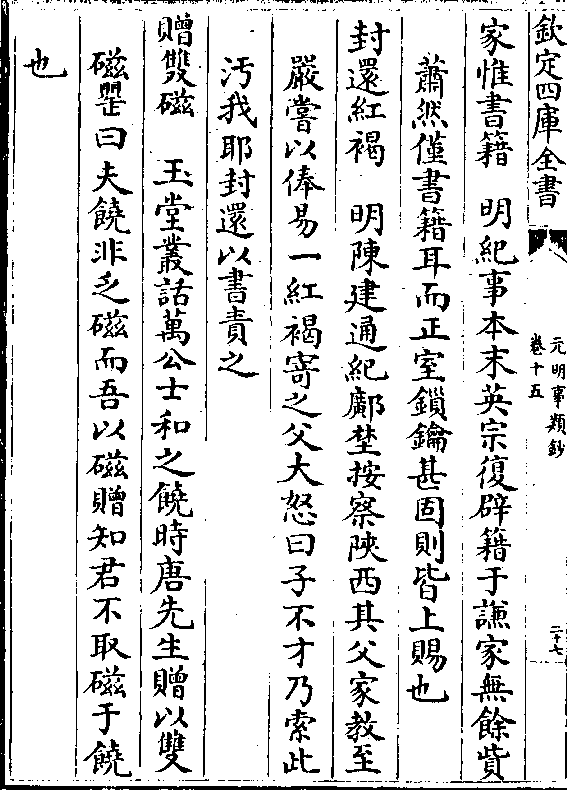 欽定四庫全書
元明事類鈔
卷十五
二十七
家惟書籍　明紀事本末英宗復辟籍于謙家無餘貲
蕭然僅書籍耳而正室鎖鑰甚固則皆上賜也
封還紅褐　明陳建通紀鄺埜按察陜西其父家教至
嚴嘗以俸易一紅褐寄之父大怒曰子不才乃索此
汚我耶封還以書責之
贈雙磁　玉堂叢話萬公士和之饒時唐先生贈以雙
磁罌曰夫饒非乏磁而吾以磁贈知君不取磁于饒
也